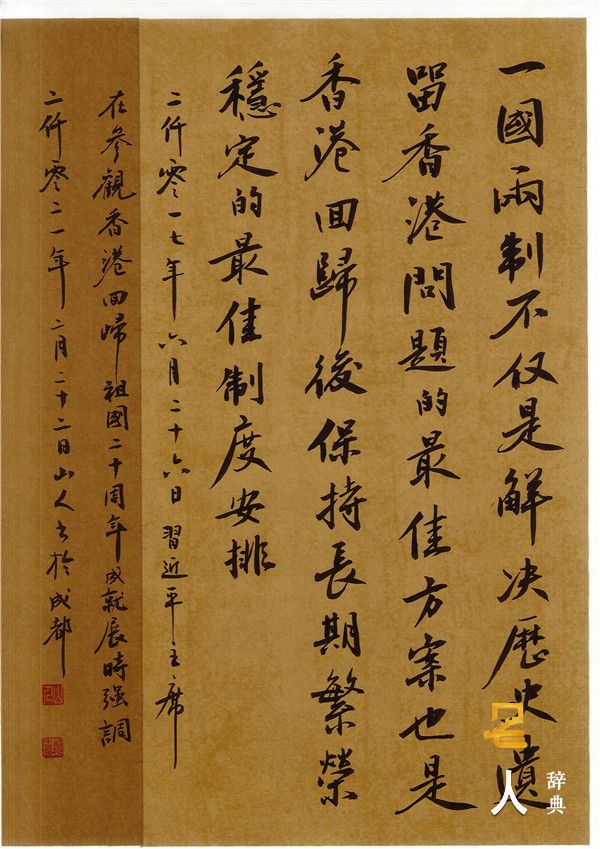 一國兩制不仅是解决歷史遺
留香港問題的最佳方案也是
香港回歸後保持長期繁榮
穩定的最佳制度安排
二仟零一七年六月二十六日習近平主席
在參觀香港回歸祖國二十周年成就展時强調
二仟零二一年二月二十二日山人書於成都
名人辞典